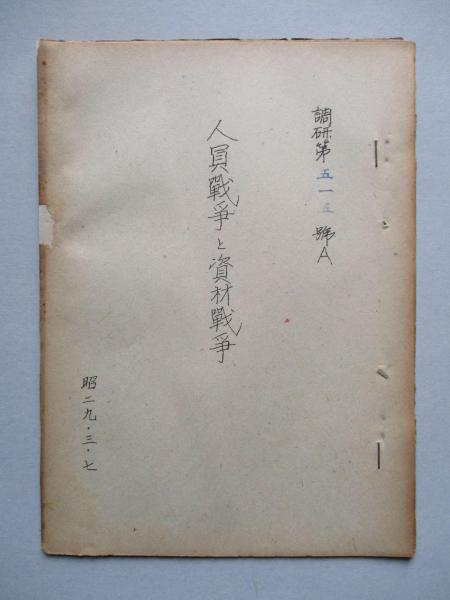 調研第五一五號A
人員戰爭と資材戰爭
昭二九・三・七